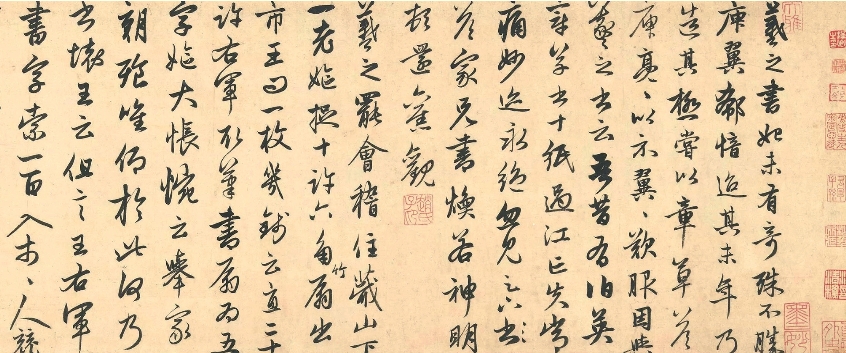 羲之書始未有奇殊不勝
庾翼郗愔迨其末年乃
造其極嘗以章草答
庾亮亮以示翼翼歎服因與
羲之書云吾昔有伯英
章草書十紙過江亡失常
痛妙迹永絕忽見足下書
答家兄書煥若神明
頓還舊觀
羲之罷會稽住蕺山下
一老嫗捉十許六角竹扇出
市王問一枚幾錢云直二十
許右軍取筆書扇為五
字嫗大悵惋云舉家
朝飱唯仰於此何乃
書壞王云但言王右軍
書字索一百入市市人競